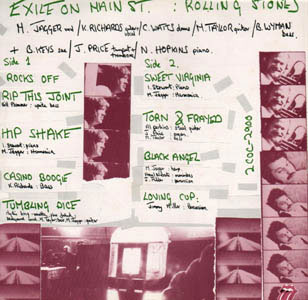 EXILE ON MAIN ST. : ROLLING STONES
M. JAGGER voc / K. RICHARDS guitar / C. WATTS drums / M. TAYLOR guitar / B. WYMAN
bass.
+ B. KEYS sax / J. PRICE trumpet & trombone N. HOPKINS piano.
Side 1
ROCKS OFF
RIP THIS JOINT
Bill Plummer : upright bass
HIP SHAKE
I. Stewart : piano
M. Jagger : Harmonica
CASINO BOOGIE
K. Richards : Bass
TUMBLING DICE
Side 2.
SWEET VIRGINIA
I. Stewart : Piano
M. Jagger : Harmonica
TORN & FRAYED
Al Perkins : steel guitar
BLACK ANGEL
M. Jagger : harp
LOVING CUP :
Jimmy Miller : Percussion
2 COC-2900